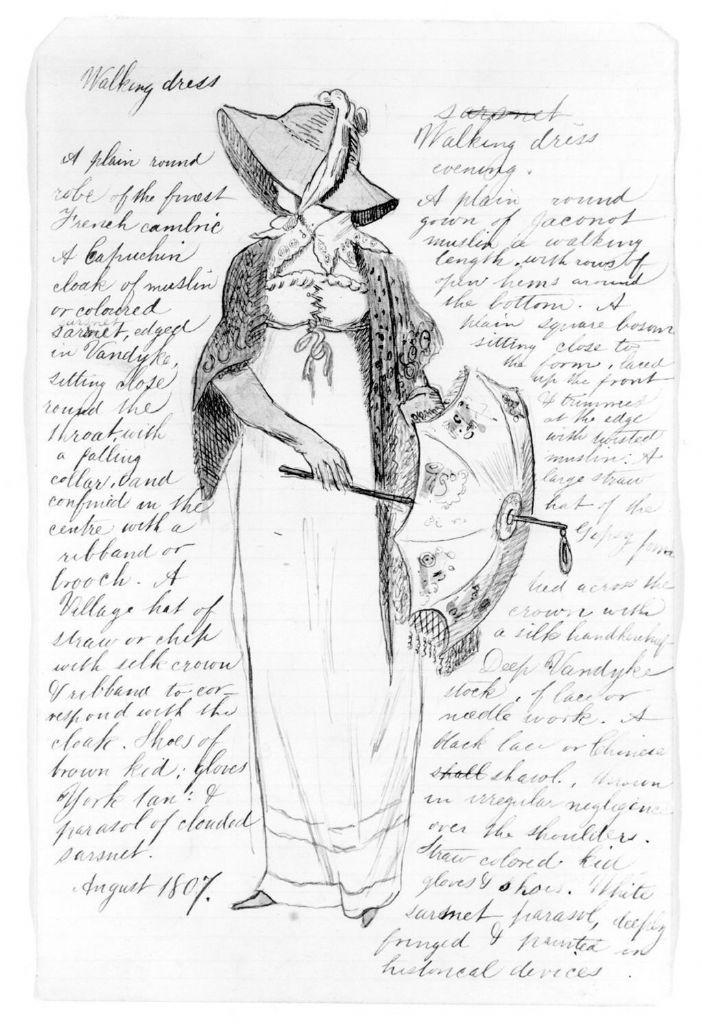 Walking dress
A plain round
robe of the finest
French cambric
A Capuchin
cloak of muslin
or coloured
sarsnet
sarsnet, edged
in Vandyke,
sitting close
round the
throat with
a falling
collar, and
confined in the
centre with a
ribband or
brooch. A
Village hat of
straw or chip
with silk crown
& ribband to cor-
respond with the
cloak. Shoes of
brown kid; gloves
York tan: &
parasol of clouded
sarsnet.
August 1807.
sarsnet
Walking dress
evening.
A plain round
gown of Jaconot
muslin, a walking
length, with rows of
open hems around
the bottom. A
plain square bosom
sitting close to
the form, laced
up the front
& trimmed
at the edge
with twisted
muslin. A
large straw
hat of the
Gipsy form
tied across the
crown with
a silk handkerchief
Deep Vandyke
stock, of lace or
needle work. A
black lace or Chinese
shall shawl, thrown
in irregular negligence
over the shoulders.
Straw colored kid
gloves & shoes. White
sarsnet parasol, deeply
fringed & painted in
historical devices.